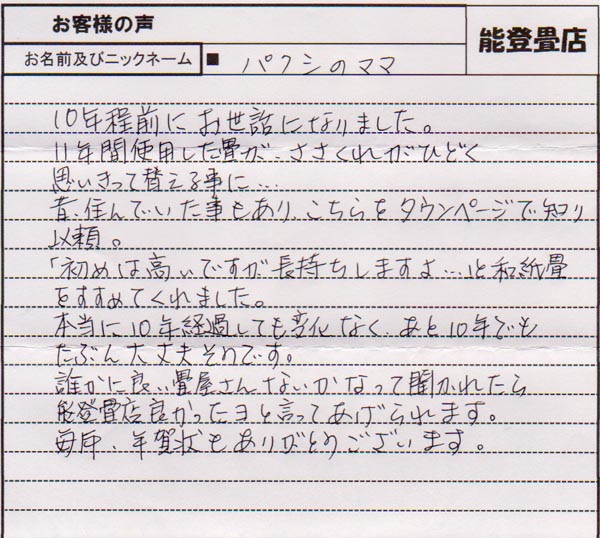 お客様の声
能登畳店
お名前及びニックネーム ■ パクシのママ
10年程前にお世話になりました。
11年間使用した畳が、ささくれがひどく
思いきって替える事に…
昔、住んでいた事もあり、こちらをタウンページで知り
依頼。
「初めは高いですが長持ちしますよ…」と和紙畳
をすすめてくれました。
本当に10年経過しても変化なく、あと10年でも
たぶん大丈夫そうです。
誰かに良い畳屋さんないかなって聞かれたら
能登畳店良かったヨと言ってあげられます。
毎年、年賀状もありがとうございます。